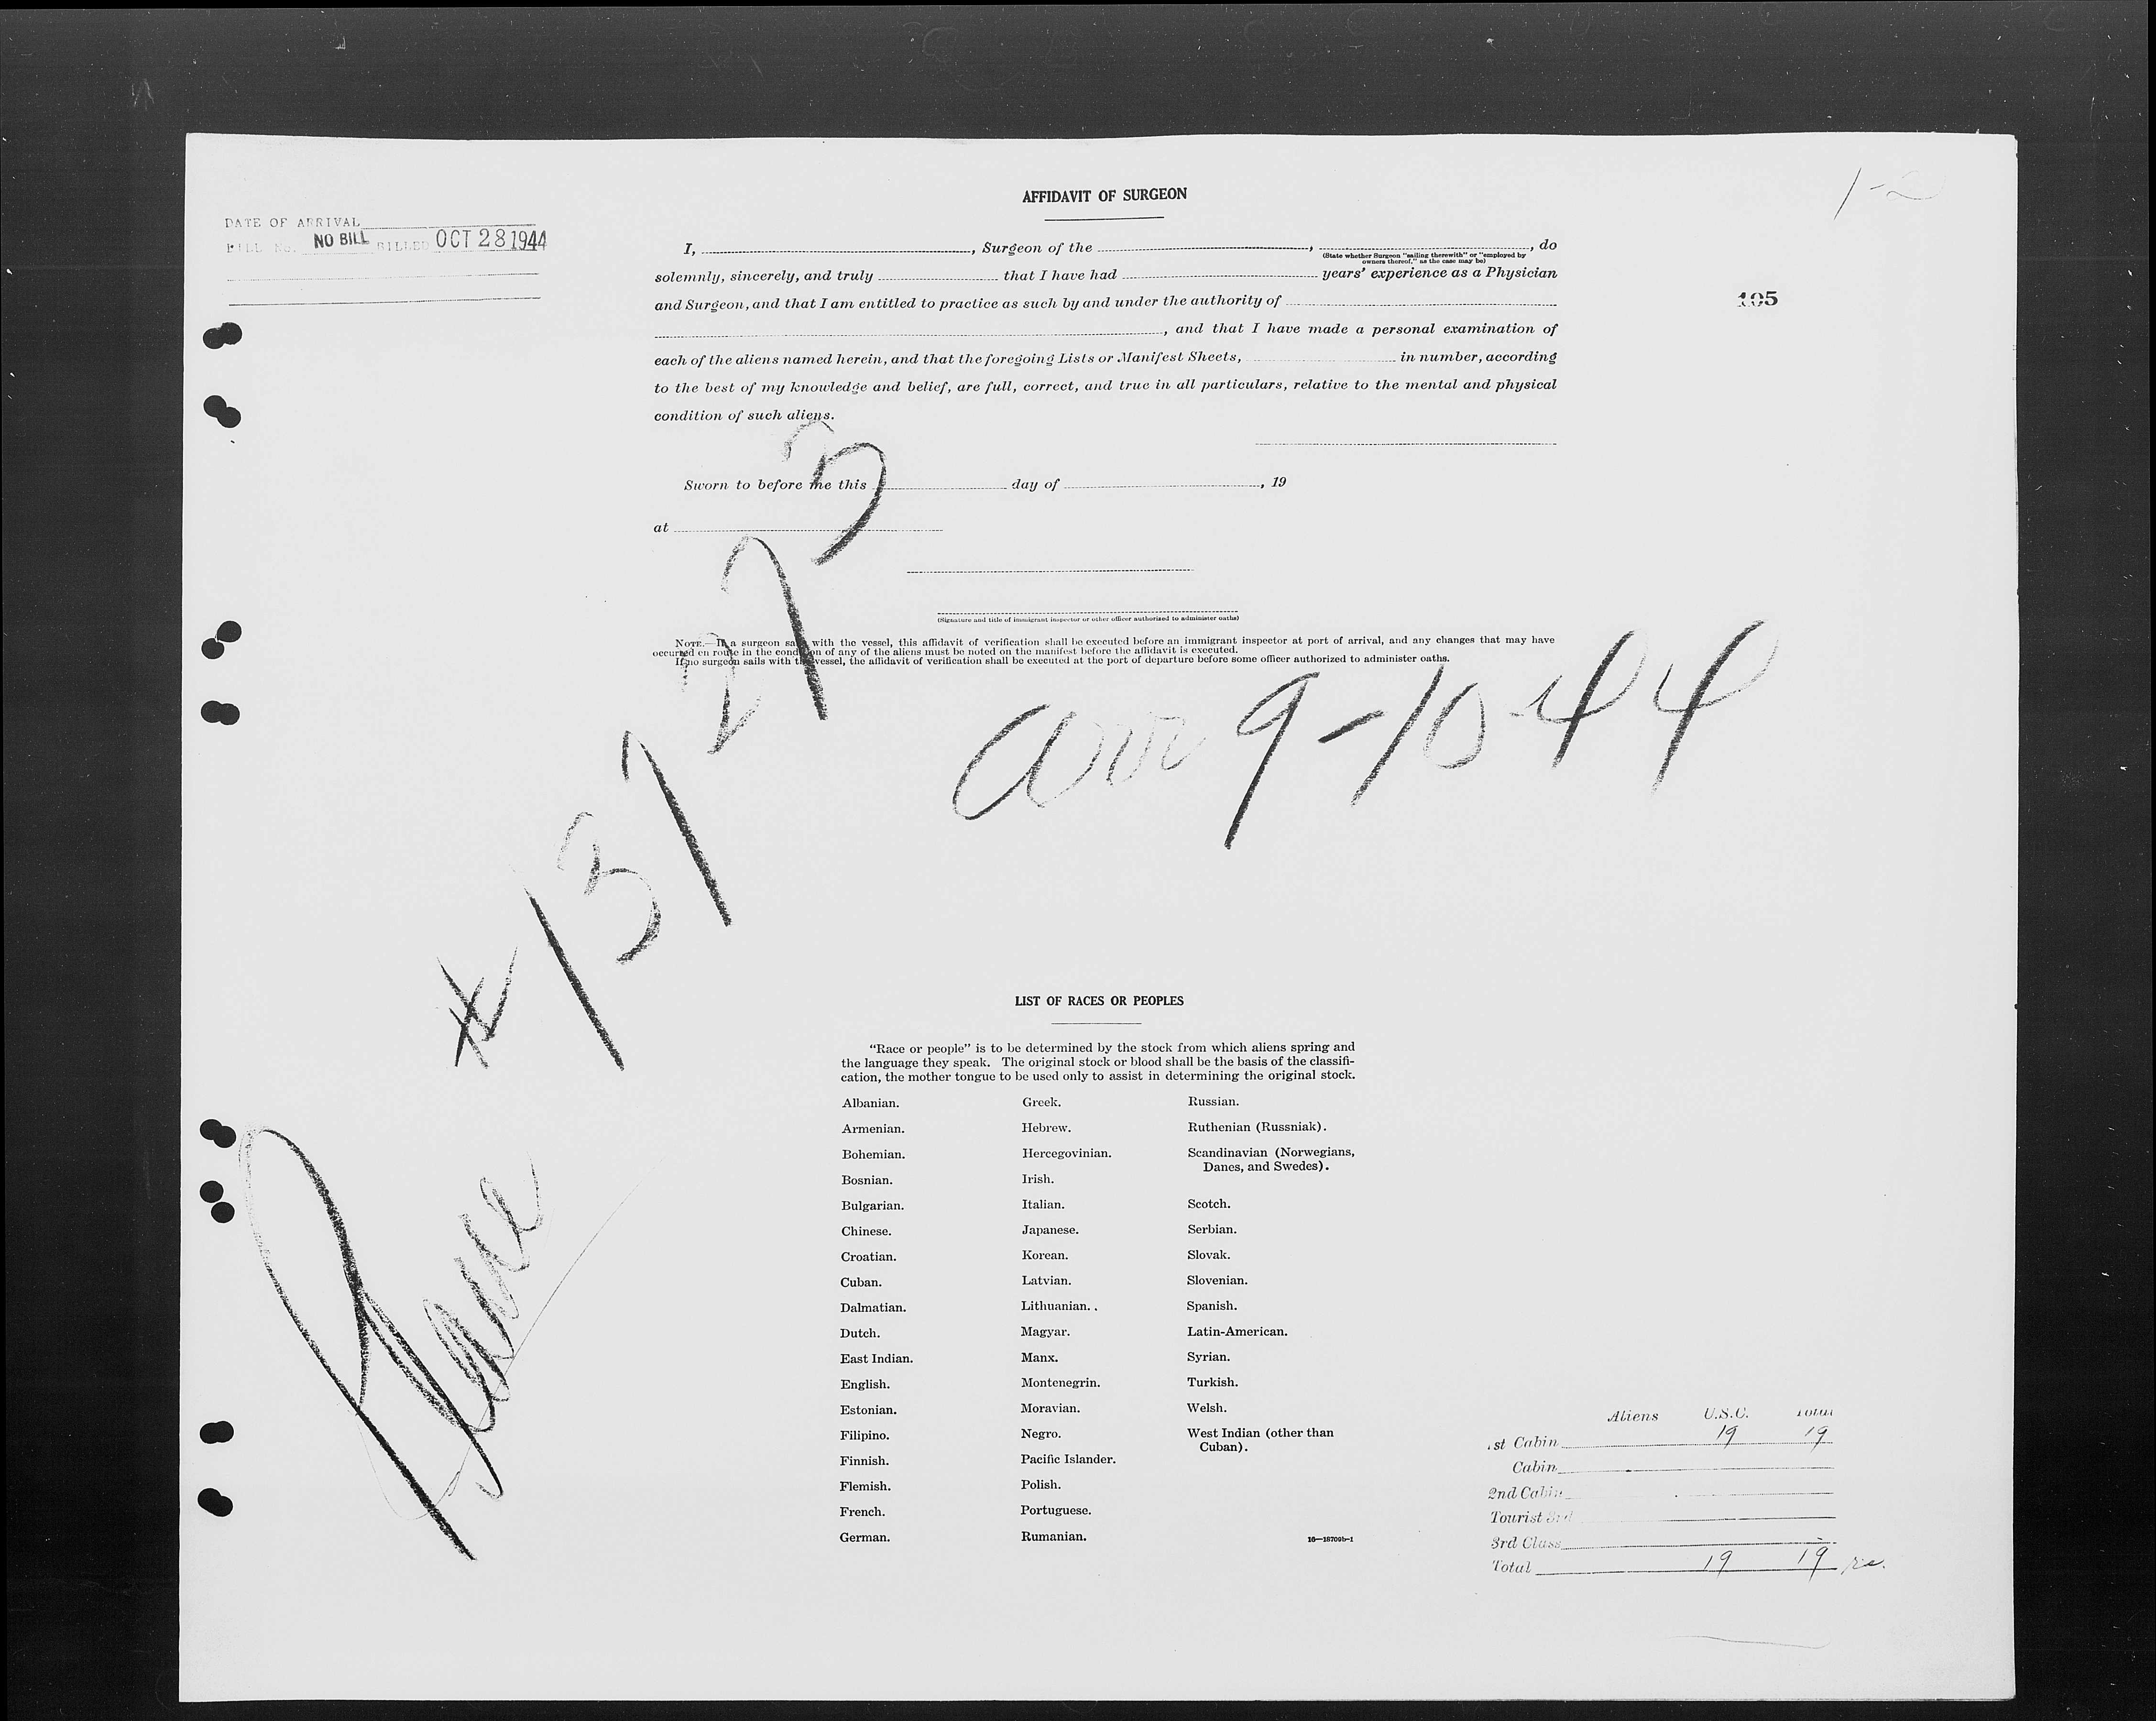 1-2
AFFIDAVIT OF SURGEON
DATE OF ARRIVAL
BILL NO. NO BILL BILLED OCT 28 1944
I, , Surgeon of the , , do
(State whether Surgeon "sailing therewith" or "employed by
owners thereof," as the case may be)
solemnly, sincerely, and truly that I have had years' experience as a Physician
and Surgeon, and that I am entitled to practice as such by and under the authority of
105
, and that I have made a personal examination of
each of the aliens named herein, and that the foregoing Lists or Manifest Sheets, in number, according
to the best of my knowledge and belief, are full, correct, and true in all particulars, relative to the mental and physical
condition of such aliens.
Sworn to before me this day of , 19
at
(Signature and title of immigrant inspector or other officer authorized to administer oaths)
NOTE.—If a surgeon sails with the vessel, this affidavit of verification shall be executed before an immigrant inspector at port of arrival, and any changes that may have
occurred en route in the condition of any of the aliens must be noted on the manifest before the affidavit is executed.
If no surgeon sails with the vessel, the affidavit of verification shall be executed at the port of departure before some officer authorized to administer oaths.
arr 9-10-44
Plane
LIST OF RACES OR PEOPLES
"Race or people" is to be determined by the stock from which aliens spring and
the language they speak. The original stock or blood shall be the basis of the classifi-
cation, the mother tongue to be used only to assist in determining the original stock.
Albanian.
Armenian.
Bohemian.
Bosnian.
Bulgarian.
Chinese.
Croatian.
Cuban.
Dalmatian.
Dutch.
East Indian.
English.
Estonian.
Filipino.
Finnish.
Flemish.
French.
German.
Greek.
Hebrew.
Hercegovinian.
Irish.
Italian.
Japanese.
Korean.
Latvian.
Lithuanian.
Magyar.
Manx.
Montenegrin.
Moravian.
Negro.
Pacific Islander.
Polish.
Portuguese.
Rumanian.
Russian.
Ruthenian (Russniak).
Scandinavian (Norwegians,
Danes, and Swedes).
Scotch.
Serbian.
Slovak.
Slovenian.
Spanish.
Latin-American.
Syrian.
Turkish.
Welsh.
West Indian (other than
Cuban).
16—18709b-1
Aliens U.S.C. Total
1st Cabin 19 19
Cabin
2nd Cabin
Tourist 3rd
3rd Class
Total 19 19